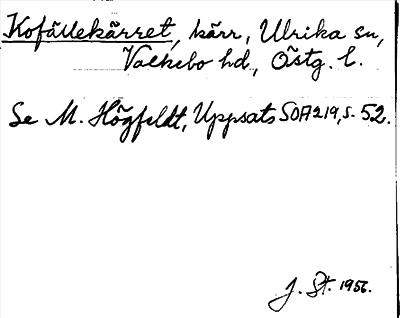 Kofällekärret, kärr, Ulrika sn,
Valkebo hd., Östg. l.
Se M. Högfeldt, Uppsats SOA 219, s. 52.
J. St. 1956.